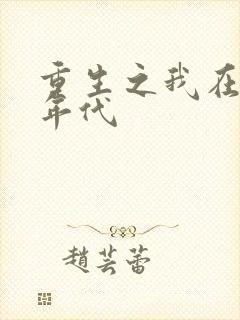 重生之我在
年代
趙芸蕾